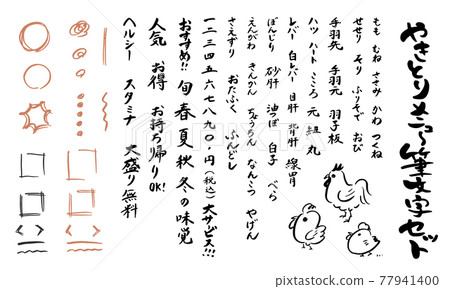 やきとりメニュー筆文字セット
もも むね ささみ かわ つくね
せせり そり ふりそで おび
手羽先 手羽元 羽子板
ハツ ハート こころ 元 紐 丸
レバー 白レバー 白肝 背肝 腺胃
ぼんじり 砂肝 油つぼ 白子 べら
えんがわ きんかん ちょうちん なんこつ やげん
さえずり おたふく ふんどし
一二三四五六七八九〇円(税込)大サービス!!!
おすすめ!! 旬 春夏秋冬の味覚
人気 お得 お持ち帰りOK!
ヘルシー スタミナ 大盛り無料
PIXTA
pixta.jp - 77941400